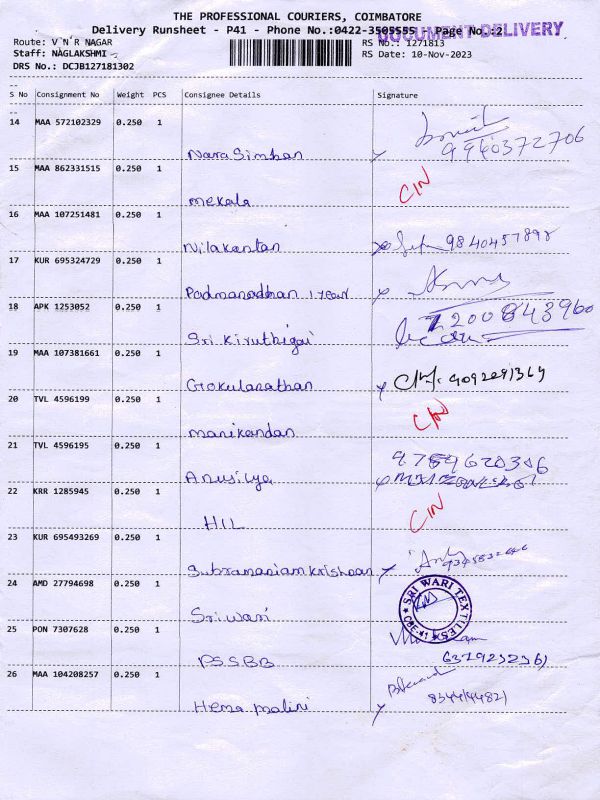 THE PROFESSIONAL COURIERS, COIMBATORE
Delivery Runsheet - P41 - Phone No.:0422-3505555 Page No.:2
DOCUMENT DELIVERY
Route: V N R NAGAR RS No.: 1271813
Staff: NAGLAKSHMI RS Date: 10-Nov-2023
DRS No.: DCJB127181302
--
S No Consignment No Weight PCS Consignee Details Signature
--
14 MAA 572102329 0.250 1
9940372706
Nara Simhan
15 MAA 862331515 0.250 1
CIN
mekala
16 MAA 107251481 0.250 1
Nilakantan 9840457898
17 KUR 695324729 0.250 1
Padmanadhan 1 year
18 APK 1253052 0.250 1
7200843960
Sri Kiruthigai
19 MAA 107381661 0.250 1
Gokulanathan
20 TVL 4596199 0.250 1
CIN
manikandan
21 TVL 4596195 0.250 1
Anusilya
22 KRR 1285945 0.250 1
CIN
HIL
23 KUR 695493269 0.250 1
Subramaniam Krishnan
24 AMD 27794698 0.250 1
SRI WARI TEXTILES
CBE-41
Sriwari
25 PON 7307628 0.250 1
PSSBB
26 MAA 104208257 0.250 1
Hema malini